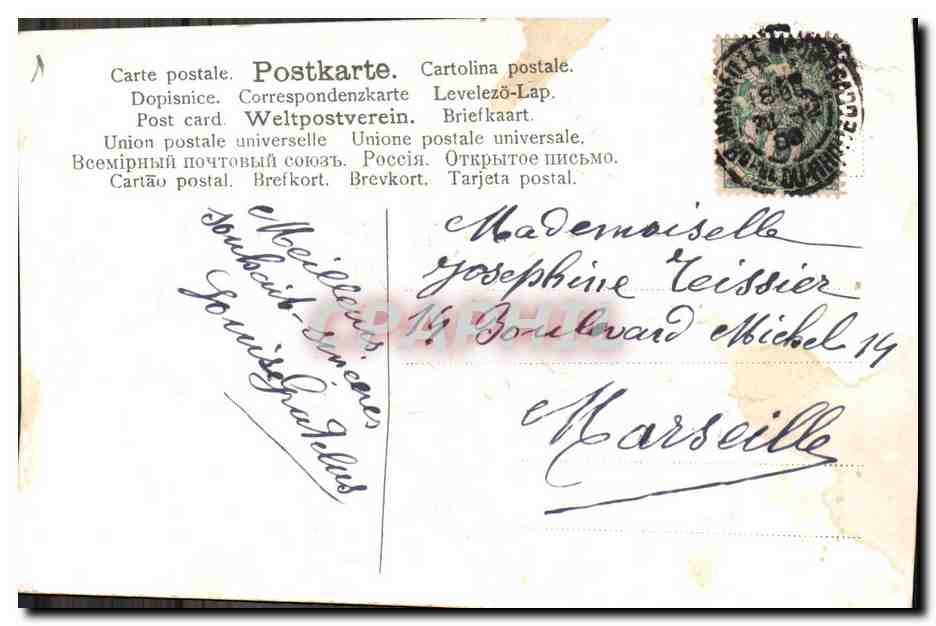 1
Carte postale. Postkarte. Cartolina postale.
Dopisnice. Correspondenzkarte Levelező-Lap.
Post card. Weltpostverein. Briefkaart.
Union postale universelle Unione postale universale.
Всемірный почтовый союзъ. Россія. Открытое письмо.
Cartão postal. Brefkort. Brevkort. Tarjeta postal.
Meilleurs
souhaits sincères
Louise
Mademoiselle
Josephine Teissier
14 Boulevard Michel 14
Marseille
GRAPHIL